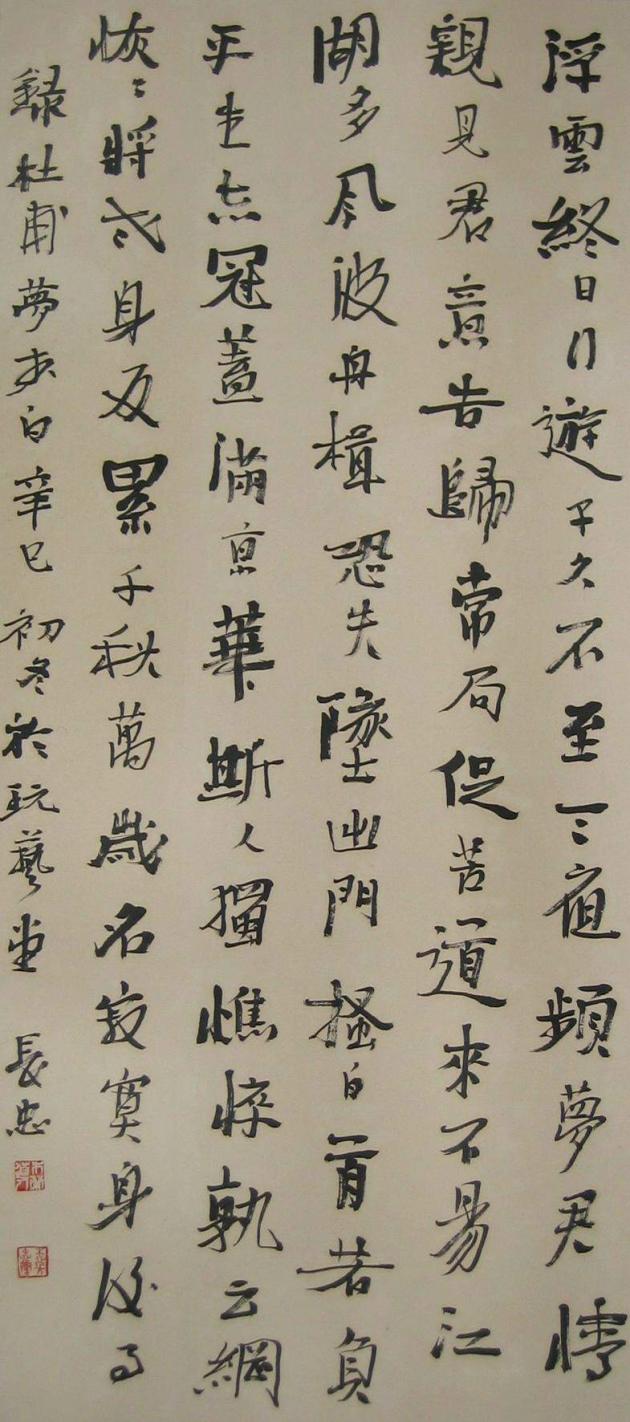 浮雲終日行遊子久不至三夜頻夢君情
親見君意告歸常局促苦道來不易江
湖多風波舟楫恐失墜出門搔白首若負
平生志冠蓋滿京華斯人獨憔悴孰云網
恢〻將老身反累千秋萬歲名寂寞身後事
錄杜甫夢李白辛巳初冬於玩藝堂 長忠